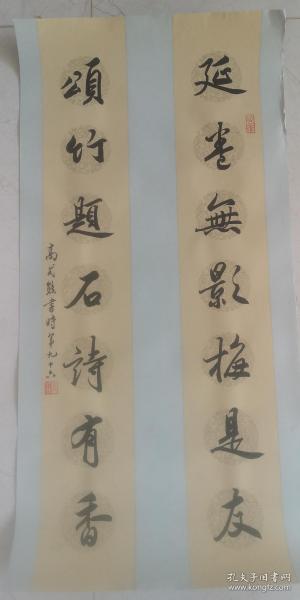 延卷無影梅是友
頌竹題石詩有香
高式熊書時年九十六
孔夫子旧书网
www.kongfz.com